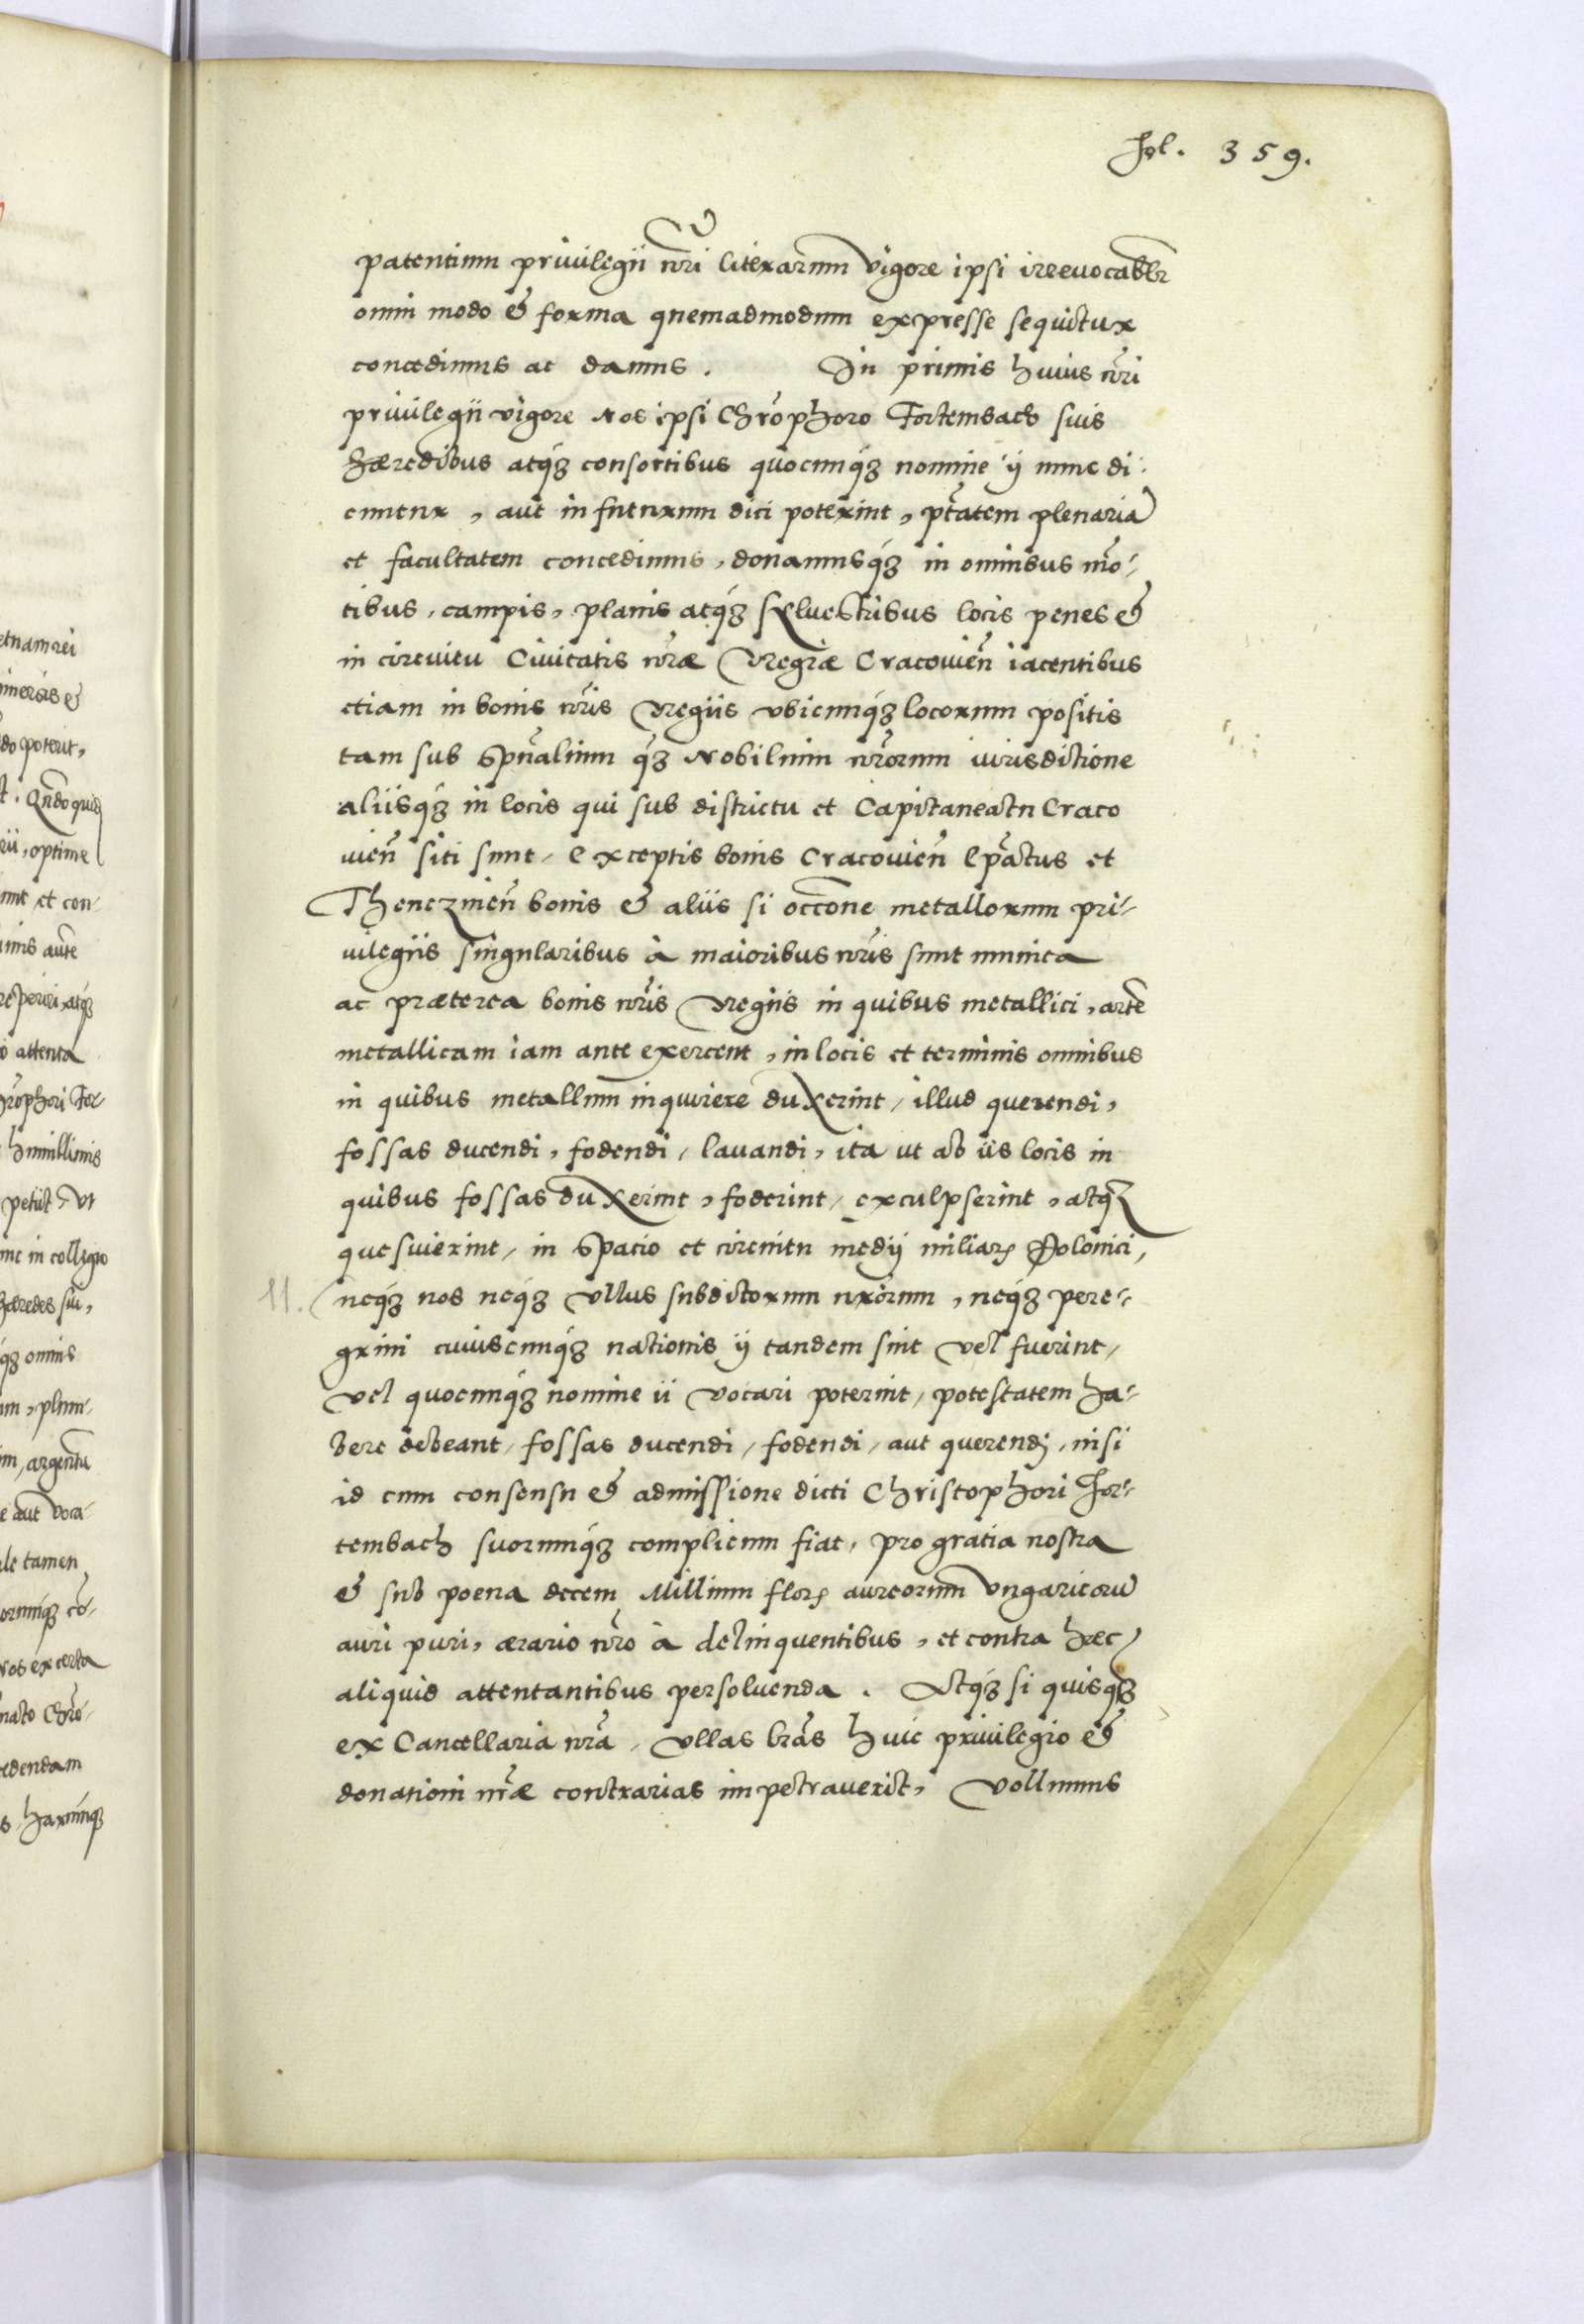 fol. 359.
patentium priuilegii nr̃i literarum vigore ipsi irreuocabilr
omni modo & forma quemadmodum expresse sequitur
concedimus ac damus. In primis huius nr̃i
priuilegii vigore Nos ipsi Chr̃ophoro Fortembach suis
hæredibus atq́ꝫ consortibus quocunq́ꝫ nomine ij nunc di-
cuntur, aut in futurum dici poterint, ptãtem plenariã
et facultatem concedimus, donamusq́ꝫ in omnibus mõ-
tibus, campis, planis atq́ꝫ syluestribus locis penes &
in circuitu Ciuitatis nr̃æ Regiæ Cracouieñ iacentibus
etiam in bonis nr̃is Regiis vbicunq́ꝫ locorum positis
tam sub Spũalium q́ꝫ Nobilium nr̃orum iurisdictione
aliisq́ꝫ in locis qui sub districtu et Capitaneatu Craco
uieñ siti sunt, exceptis bonis Cracouieñ Ep̃atus et
Thenezinieñ bonis & aliis si occõne metallorum pri-
uilegiis singularibus à maioribus nr̃is sunt munita
ac præterea bonis nr̃is Regiis in quibus metallici, artẽ
metallicam iam ante exercent, in locis et terminis omnibus
in quibus metallum inquirere duxerint, illud querendi,
fossas ducendi, fodendi, lauandi, ita ut ab iis locis in
quibus fossas duxerint, foderint, exculpserint, atqꝫ
quesuierint, in spacio et circuitu medij miliarꝭ Polonici,
11. neq́ꝫ nos neq́ꝫ vllus subditorum nr̃orum, neq́ꝫ pere-
grini cuiuscunq́ꝫ nationis ij tandem sint vel fuerint,
vel quocunq́ꝫ nomine ii vocari poterint, potestatem ha-
bere debeant, fossas ducendi, fodendi, aut querendj, nisi
id cum consensu & admissione dicti Christophori For-
tembach suorumq́ꝫ complicum fiat, pro gratia nostra
& sub poena decem Millium florꝭ aureorum vngaricorũ
auri puri, ærario nr̃o à delinquentibus, et contra hæc
aliquid attentantibus persoluenda. Atq́ꝫ si quisqꝫ
ex Cancellaria nr̃a, vllas lr̃as huic priuilegio &
donationi nr̃æ contrarias impetrauerit, Vollumus